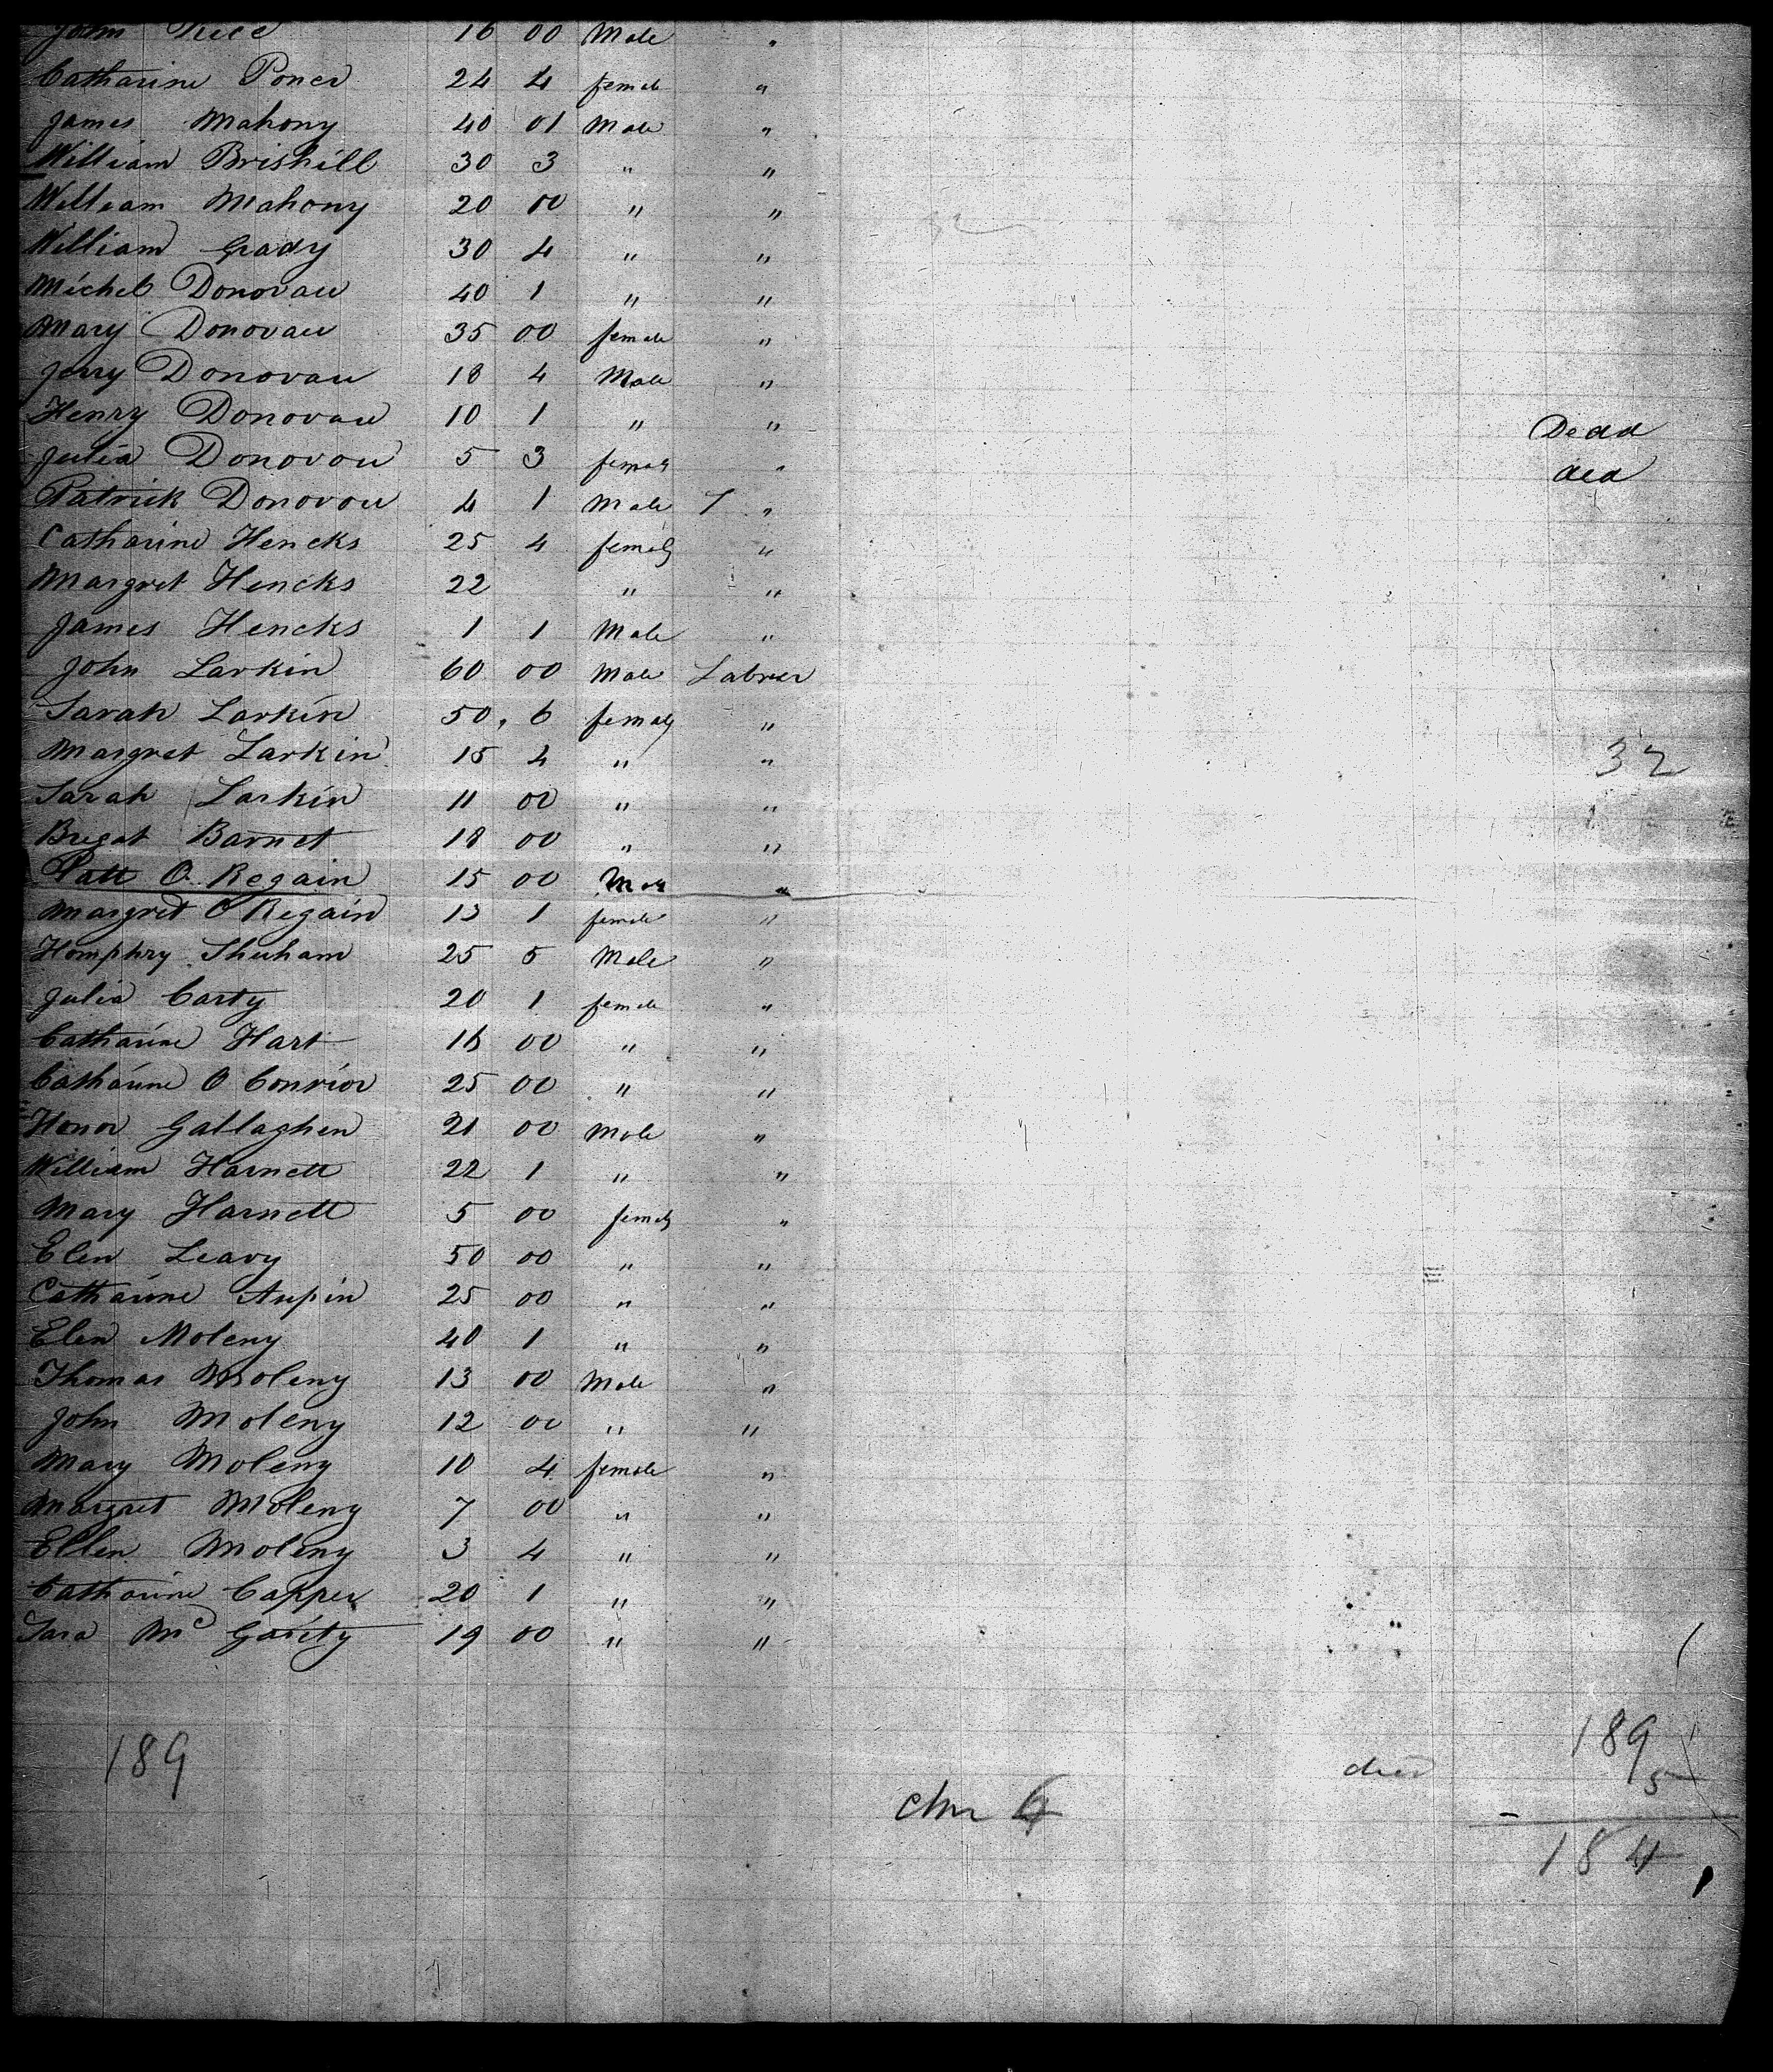 John Rice 16 00 Male "
Catharine Poner 24 4 female "
James Mahony 40 01 Male "
William Brishill 30 3 " "
William Mahony 20 10 " "
William Grady 30 4 " "
Michel Donovan 40 1 " "
Mary Donovan 35 00 female "
Jerry Donovan 18 4 Male "
Henry Donovan 10 1 " " Dead
Julia Donovon 5 3 female " ded
Patrick Donovon 4 1 Male 7 "
Catharine Hencks 25 4 female "
Margret Hencks 22 " "
James Hencks 1 1 Male "
John Larkin 60 00 Male Labrer
Sarah Larkin 50 6 female "
Margret Larkin 15 4 " " 32
Sarah Larkin 11 00 " "
Bregat Barnet 18 00 " "
Patt O Regain 15 00 Male "
Margret O Regain 13 1 female "
Homphry Shuham 25 5 Male "
Julia Carty 20 1 female "
Catharine Hart 16 00 " "
Catharine O Connor 25 00 " "
Honor Gallaghen 21 00 Male "
William Harnett 22 1 " "
Mary Harnett 5 00 female "
Elen Leavy 50 00 " "
Catharine Aupin 25 00 " "
Elen Moleny 40 1 " "
Thomas Moleny 13 00 Male "
John Moleny 12 00 " "
Mary Moleny 10 4 female "
Margret Moleny 7 00 " "
Ellen Moleny 3 4 " "
Catharine Capper 20 1 " "
Sara Mc Garity 19 00 " "
189 189
died 5
184